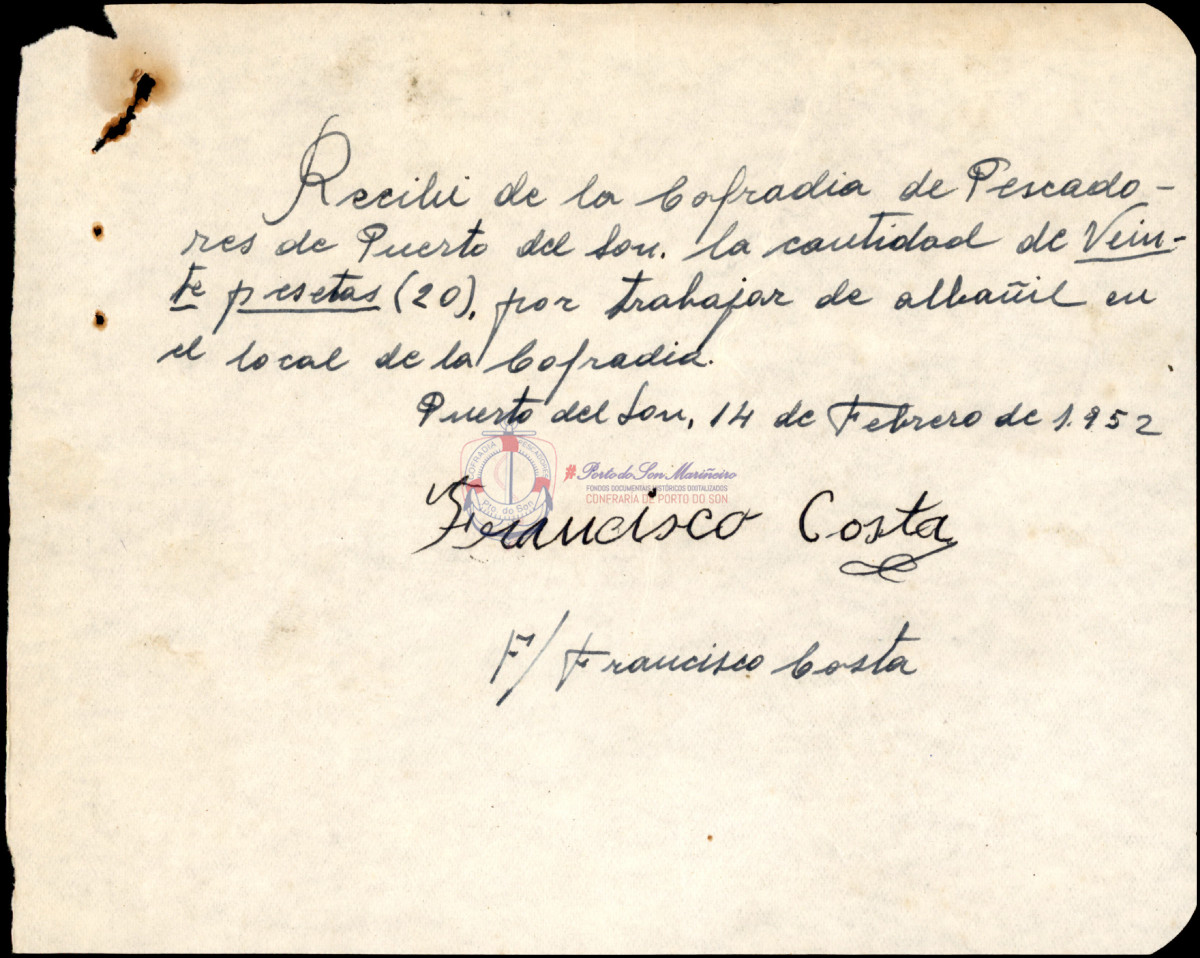 Recibi de la Cofradia de Pescado-
res de Puerto del Son. la cantidad de Vein-
te pesetas (20), por trabajar de albañil en
el local de la Cofradia.
Puerto del Son, 14 de Febrero de 1.952
COFRADIA PESCADORES
Pto. do Son
# Porto do Son Mariñeiro
FONDOS DOCUMENTAIS HISTÓRICOS DIXITALIZADOS
CONFRARÍA DE PORTO DO SON
Francisco Costa
F/ Francisco Costa